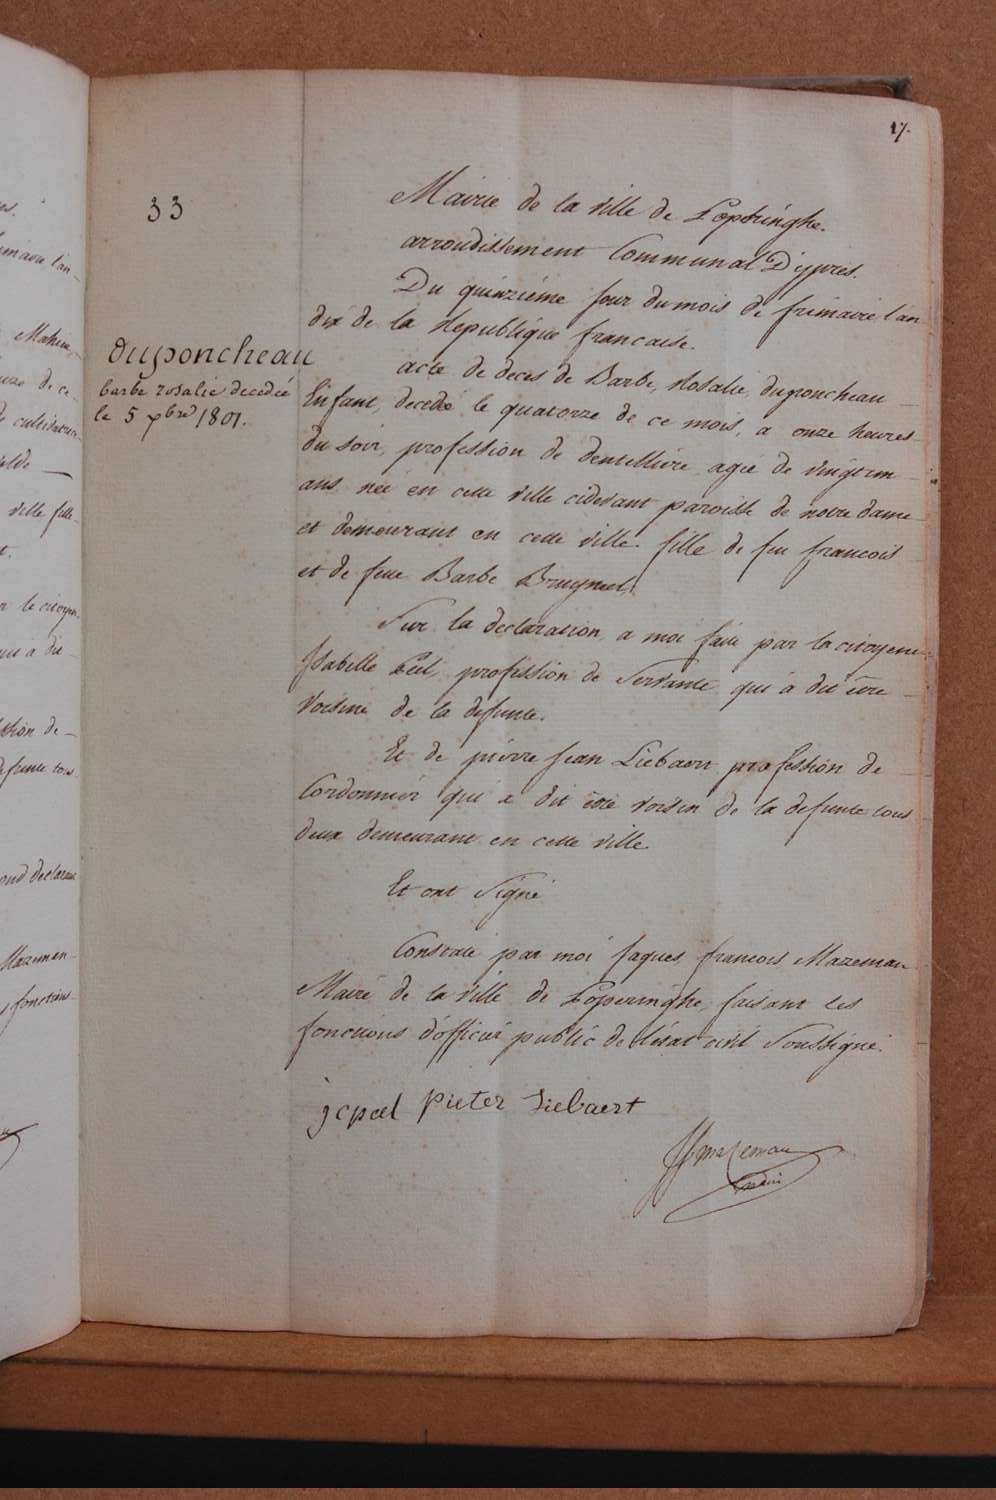 17.
33
Mairie de la ville de Poperinghe.
arrondissement Communal D'ypres.
Du quinziéme jour du mois de frimaire l'an
dix de la Republique francaise.
duponcheau
barbe rosalie decedée
le 5 xbre 1801.
acte de deces de Barbe, Rosalie, duponcheau
Enfant, decedé le quatorze de ce mois, a onze heures
du soir, profession de dentelliere agée de vingt un
ans née en cette ville cidevant paroisse de notre dame
et demeurant en cette ville. fille de feu francois
et de feue Barbe
Sur la declaration a moi faite par la citoyenne
Isabelle Pel, profession de Servante qui a dit être
Voisine de la defunte.
Et de pierre jean Liebaert profession de
Cordonnier qui a dit être voisin de la defunte tous
deux demeurant en cette ville
Et ont Signé
Constaté par moi jaques francois Mazeman
Maire de la ville de Poperinghe, faisant les
fonctions d'officier public de l'état civil Soussigné.
jcpeel pieter Liebaert
JfmaZeman
maire